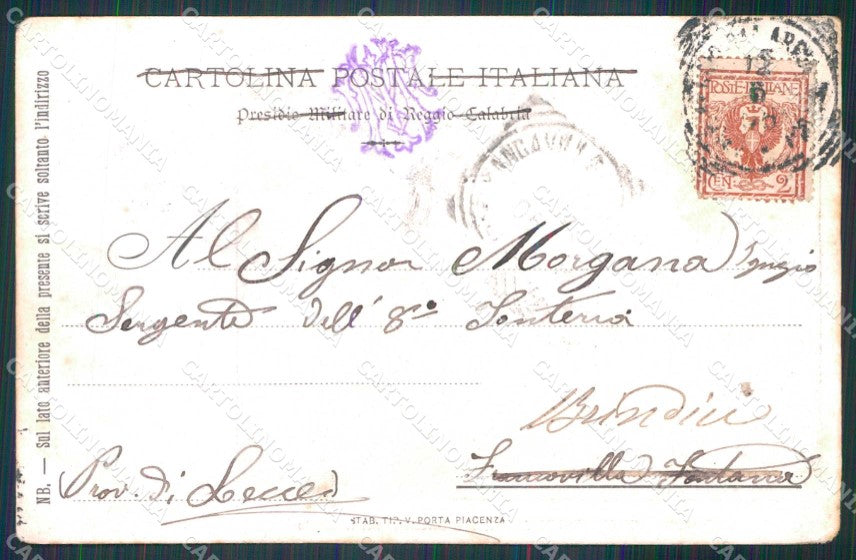 CARTOLINA POSTALE ITALIANA
Presidio Militare di Reggio Calabria
POSTE ITALIANE
CEN. 2
Al Signor Morgana Ignazio
Sergente dell' 8° Fanteria
Brindisi
Francavilla Fontana
(Prov. di Lecce)
STAB. TIP. V. PORTA PIACENZA
NB. — Sul lato anteriore della presente si scrive soltanto l'indirizzo
CARTOLINOMANIA